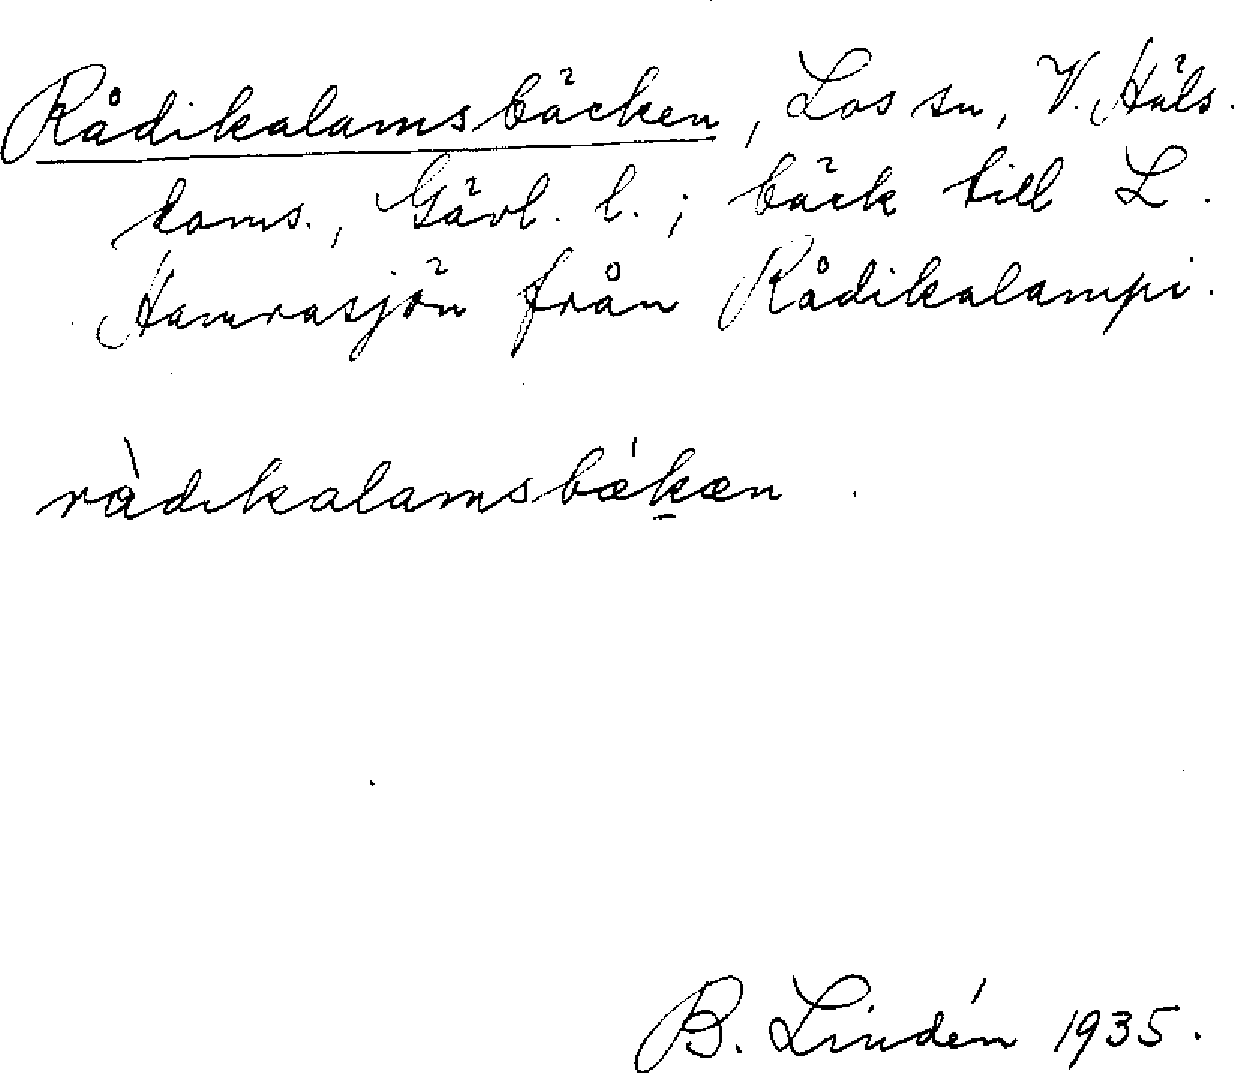 Rådikalamsbäcken, Los sn, V. Häls.
doms., Gävl. l.; bäck till L.
Hamrasjön från Rådikalampi.
ràdıkalamsbǽkæn.
B. Lindén 1935.